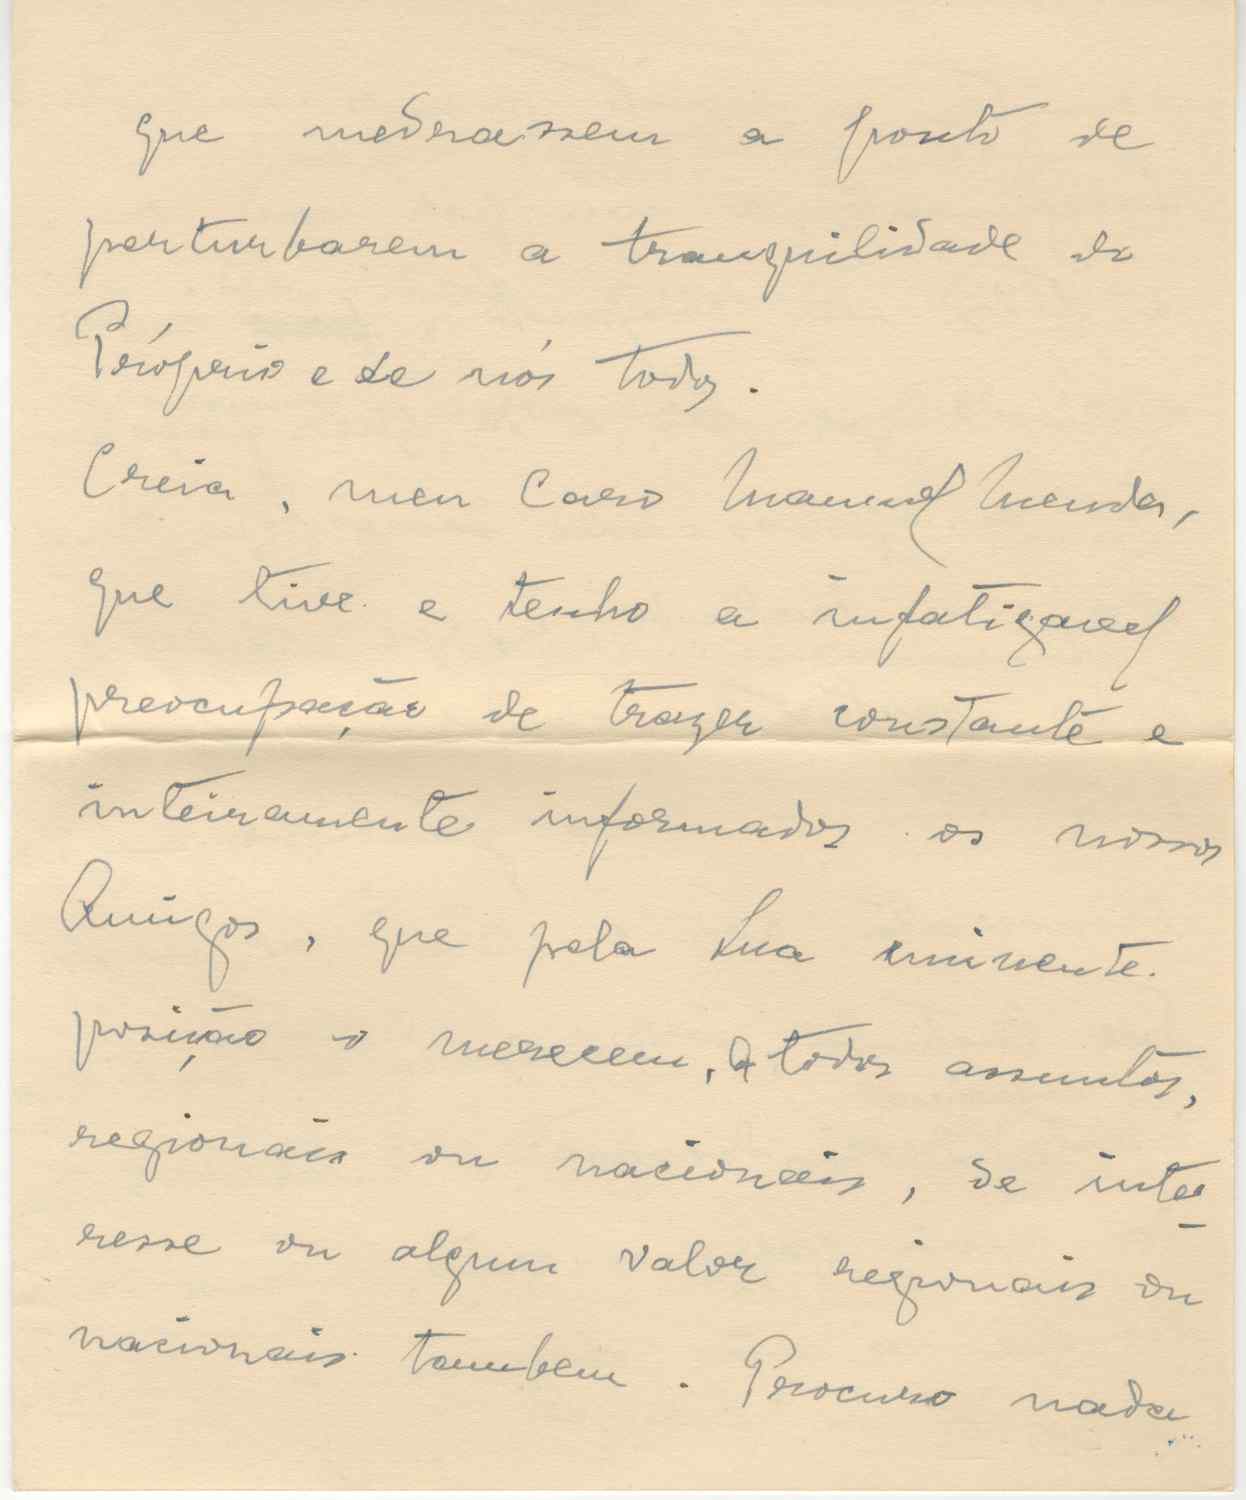 que medrassem a ponto de
perturbarem a tranquilidade do
Próprio e de nós todos.
Creia, meu Caro Manuel Mendes,
que tive e tenho a infatigavel
preocupação de trazer constante e
inteiramente informados os nossos
Amigos, que pela sua eminente
posição o merecem, de todos assuntos,
regionais ou nacionais, de inte-
resse ou algum valor regionais ou
nacionais tambem. Procuro nada